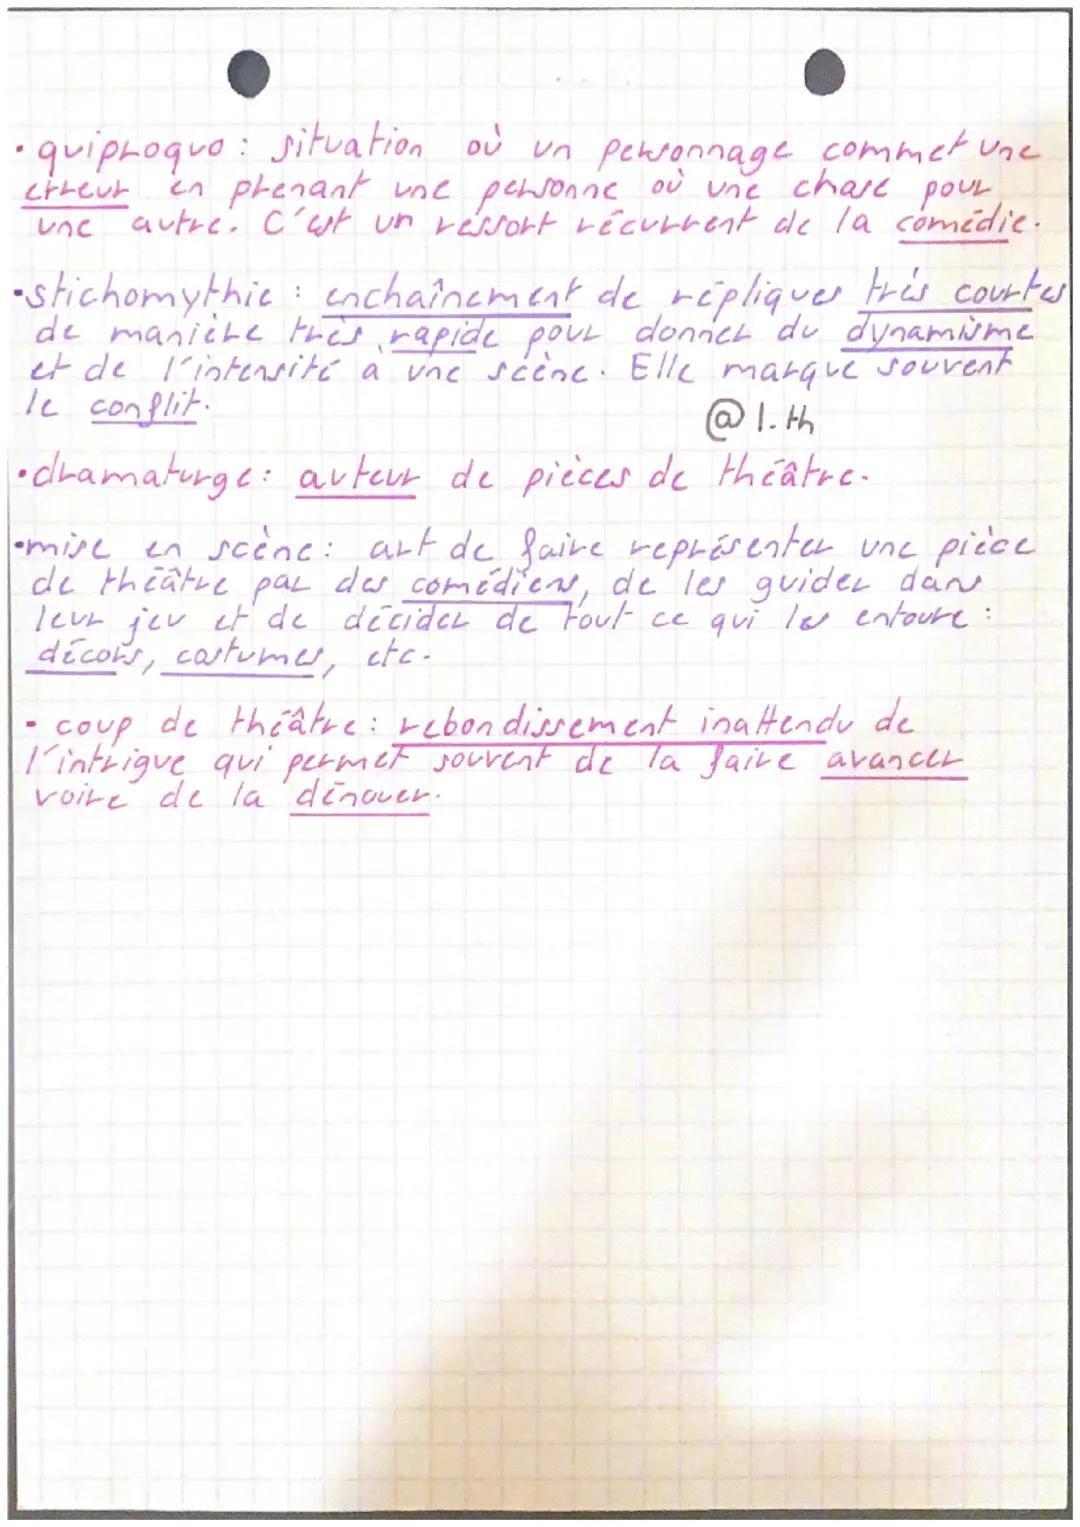 • quiproquo : situation où un personnage commet une
erreur en prenant une personne où une chose pour
une autre. C'est un ressort récurrent de la comédie.
• stichomythie : enchaînement de répliques très courtes
de manière très rapide pour donner du dynamisme
et de l'intensité à une scène. Elle marque souvent
le conflit.
@ l.th
• dramaturge : auteur de pièces de théâtre.
• mise en scène : art de faire représenter une pièce
de théâtre par des comédiens, de les guider dans
leur jeu et de décider de tout ce qui les entoure :
décors, costumes, etc.
- coup de théâtre : rebondissement inattendu de
l'intrigue qui permet souvent de la faire avancer
voire de la dénouer.